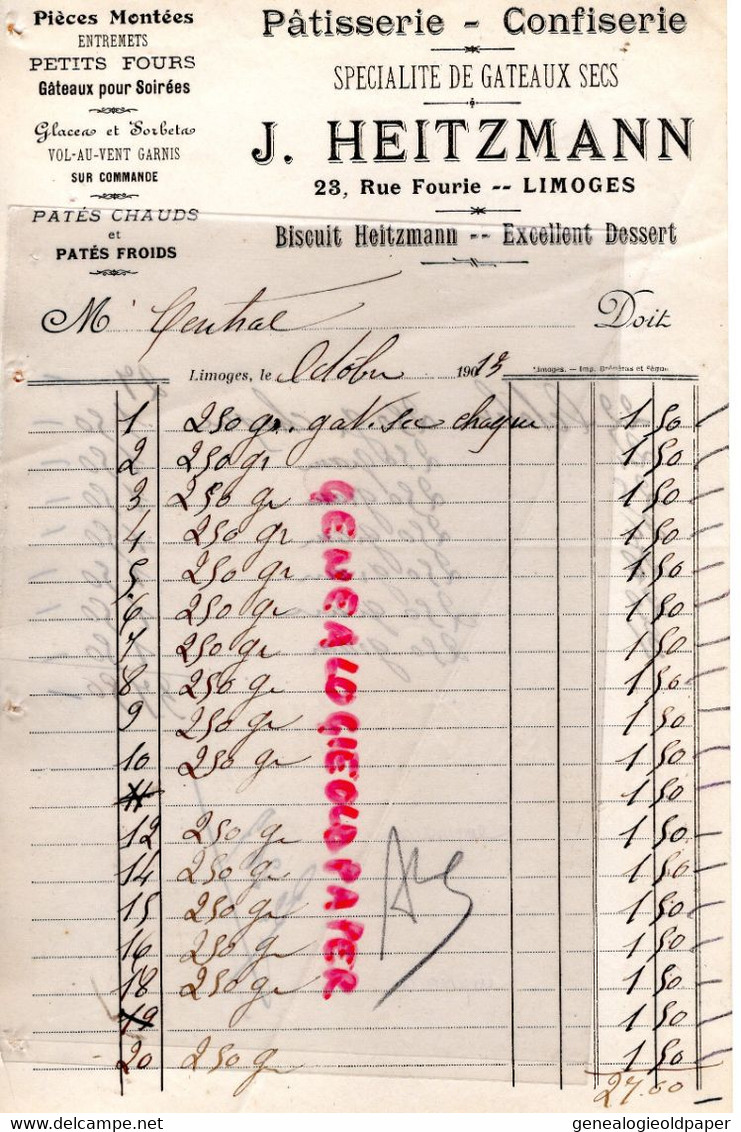 Pièces Montées
ENTREMETS
PETITS FOURS
Gâteaux pour Soirées
Glaces et Sorbets
VOL-AU-VENT GARNIS
SUR COMMANDE
PATÉS CHAUDS
et
PATÉS FROIDS
Pâtisserie - Confiserie
SPECIALITE DE GATEAUX SECS
J. HEITZMANN
23, Rue Fourie -- LIMOGES
Biscuit Heitzmann -- Excellent Dessert
M Central Doit
Limoges, le Octobre 1913
Limoges. — Imp.
1 250 gr. gat. sec chaque 1 50
2 250 gr 1 50
3 250 gr 1 50
4 250 gr 1 50
5 250 gr 1 50
6 250 gr 1 50
7 250 gr 1 50
8 250 gr 1 50
9 250 gr 1 50
10 250 gr 1 50
11 1 50
12 250 gr 1 50
14 250 gr 1 50
15 250 gr 1 50
16 250 gr 1 50
18 250 gr 1 50
19 1 50
20 250 gr 1 50
27.00
GENEALOGIEOLDPAPER
genealogieoldpaper
delcampe.net